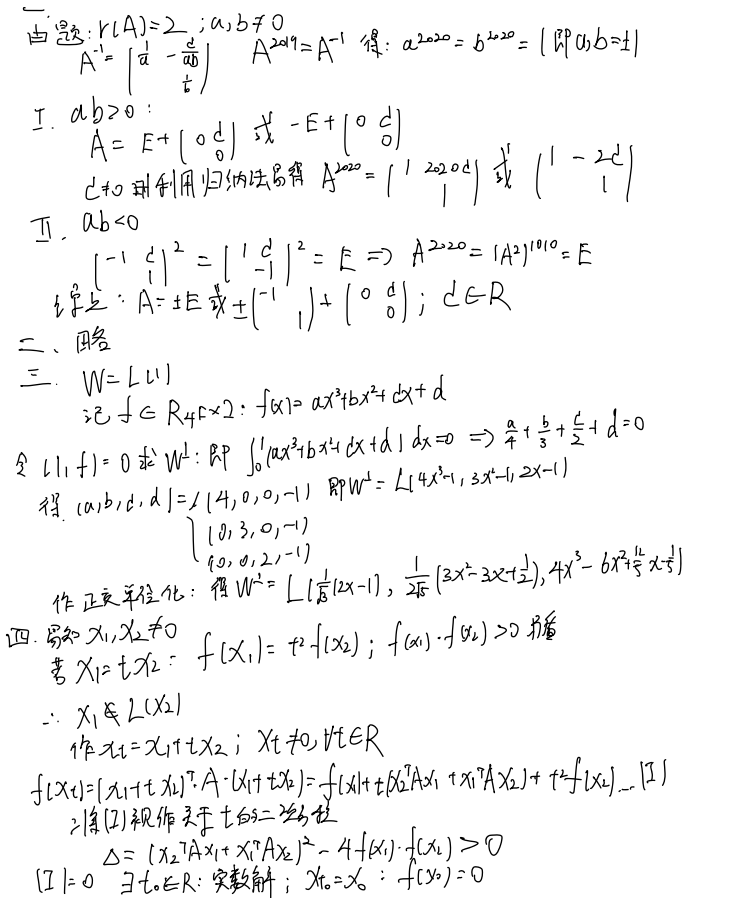 一
由题: r(A)=2 ; a,b≠0
A⁻¹= [1/a -d/ab ; 1/b] A²⁰¹⁹=A⁻¹ 得: a²⁰²⁰=b²⁰²⁰=1 即a,b=±1
I. ab>0 :
A= E+[0 d ; 0] 或 -E+[0 d ; 0]
d≠0 则利用归纳法易得 A²⁰²⁰=[1 2020d ; 1] 或 [1 -2d ; 1]
II. ab<0
[-1 d ; 1]² = [1 d ; -1]² = E ⇒ A²⁰²⁰=(A²)¹⁰¹⁰=E
综上: A=±E 或 ±[-1 ; 1]+[0 d ; 0] ; d∈R
二、略
三. W=L(1)
记 f∈R₄[x]: f(x)=ax³+bx²+cx+d
令 (1,f)=0 求W⊥: 即 ∫₀¹(ax³+bx²+cx+d)dx=0 ⇒ a/4+b/3+c/2+d=0
得 (a,b,c,d)={(4,0,0,-1) 即W⊥=L(4x³-1, 3x²-1, 2x-1)
(0,3,0,-1)
(0,0,2,-1)
作正交单位化: 得W⊥=L(1/√3(2x-1), 1/2√5(3x²-3x+1/2), 4x³-6x²+12/5x-1/5)
四. 易知 x₁,x₂≠0
若 x₁=tx₂: f(x₁)=t²f(x₂) ; f(x₁)·f(x₂)>0 矛盾
∴ x₁∉L(x₂)
作xt=x₁+tx₂ ; xt≠0,∀t∈R
f(xt)=(x₁+tx₂)ᵀ·A·(x₁+tx₂)=f(x₁)+t(x₂ᵀAx₁+x₁ᵀAx₂)+t²f(x₂)...(I)
将(I)视作关于t的二次方程
Δ=(x₂ᵀAx₁+x₁ᵀAx₂)²-4f(x₁)·f(x₂)>0
(I)=0 ∃t₀∈R: 实数解 ; xt₀=x₀ : f(x₀)=0